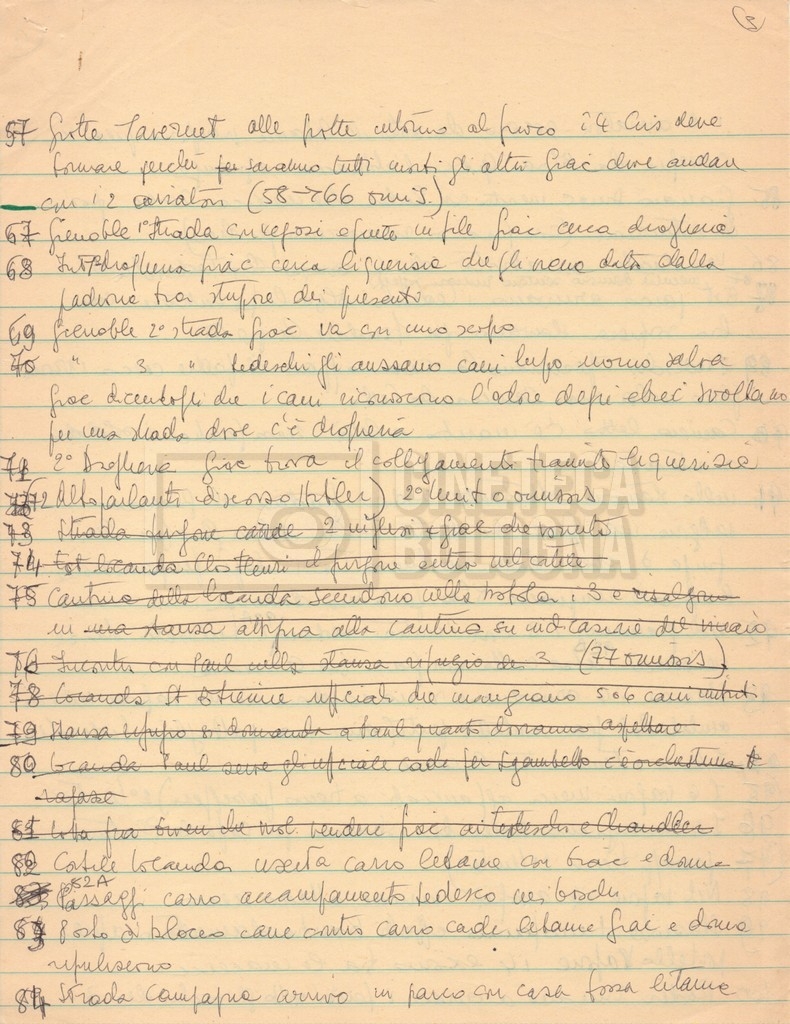 3
57 Grotte Tavernet alle grotte intorno al fuoco i 4 Cris deve
tornare perchè saranno tutti morti gli altri Grac deve andare
con i 2 aviatori (58→66 omis.)
67 Grenoble 1° strada in fila Grac cerca drogheria
68 drogheria Grac cerca liquerizia che gli viene data dalla
padrona tra stupore dei presenti
69 Grenoble 2° strada Grac va con uno scopo
70 " 3 " tedeschi gli aizzano cani lupo uomo salva
Grac dicendogli che i cani riconoscono l'odore degli ebrei svoltano
per una strada dove c'è drogheria
71 2° Drogheria Grac trova il collegamento tramite liquerizia
72 (Altoparlanti discorso Hitler) 2° omissis
73 Strada furgone 2 inglesi + Grac
74 locanda Clos Fleuri il furgone entra nel cortile
75 Cantina della locanda scendono nella botola i 3 e risalgono
in una stanza attigua alla cantina su indicazione del
76 Incontro con Paul nella stanza rifugio dei 3 (77 omissis)
78 Locanda St Etienne ufficiali che mangiano 5 o 6 cani
79 Stanza rifugio si domanda a Paul quanto dovranno aspettare
80 Locanda Paul serve gli ufficiali cade per sgambetto c'è orchestrina
ragazze
81 fra che vendere Grac ai tedeschi e Chandler
82 Cortile locanda uscita carro letame con Grac e donna
82A Passaggi carro accampamento tedesco nei boschi
83 Posto di blocco cane contro carro cade letame Grac e donna
ripuliscono
84 Strada Campagna arrivo in parco con casa fossa letame
CINETECA
BOLOGNA